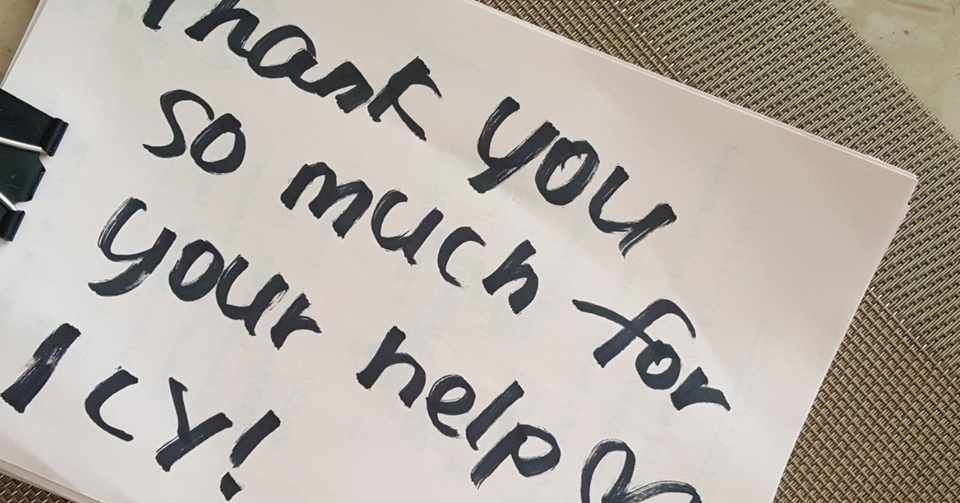 Thank you
so much for
your help ♡
Icy!